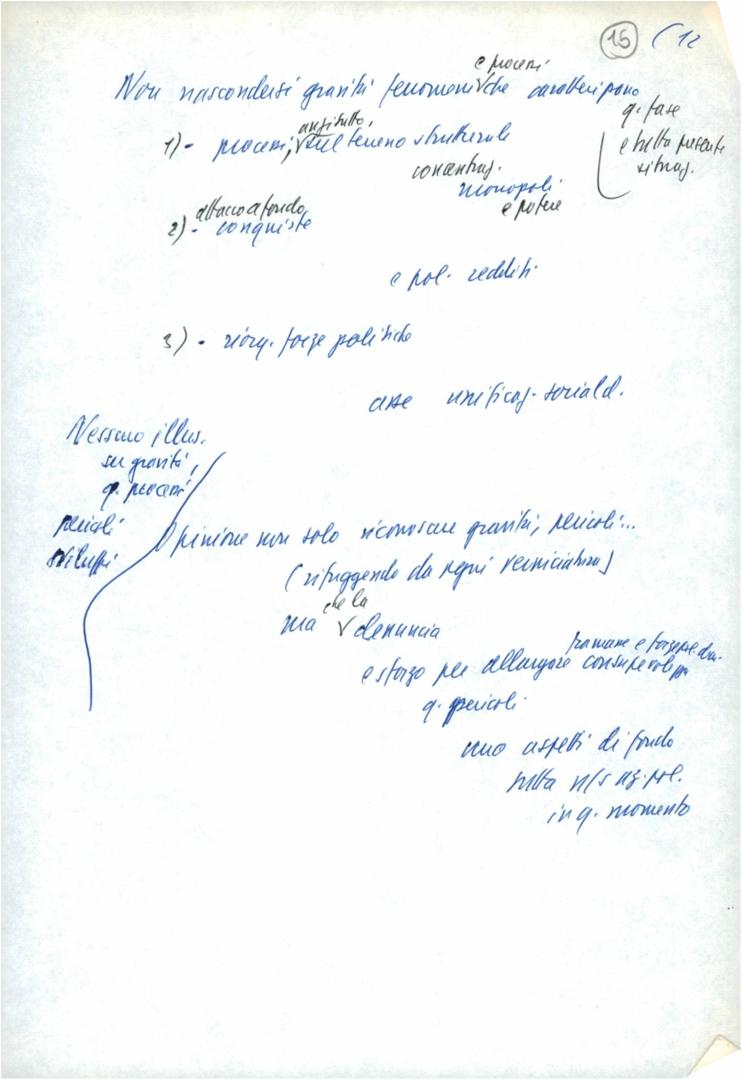 15 (12
e processi
Non nascondersi gravità fenomeni che caratterizzano
q. fase
e tutta presente
situaz.
anzitutto,
1) - processi, sul terreno strutturale
concentraz.
monopoli
e potere
attacco a fondo
2) - conquiste
e pol. redditi
3) - riorg. forze politiche
asse unificaz. sociald.
Nessuna illus.
su gravità,
q. processi
pericoli
sviluppi
Opinione non solo riconoscere gravità, pericoli...
(rifuggendo da ogni verniciatura)
che la
ma denuncia
tra masse e forze
e sforzo per allargare consapevol.
q. pericoli
uno aspetti di fondo
tutta n/s az. pol.
in q. momento